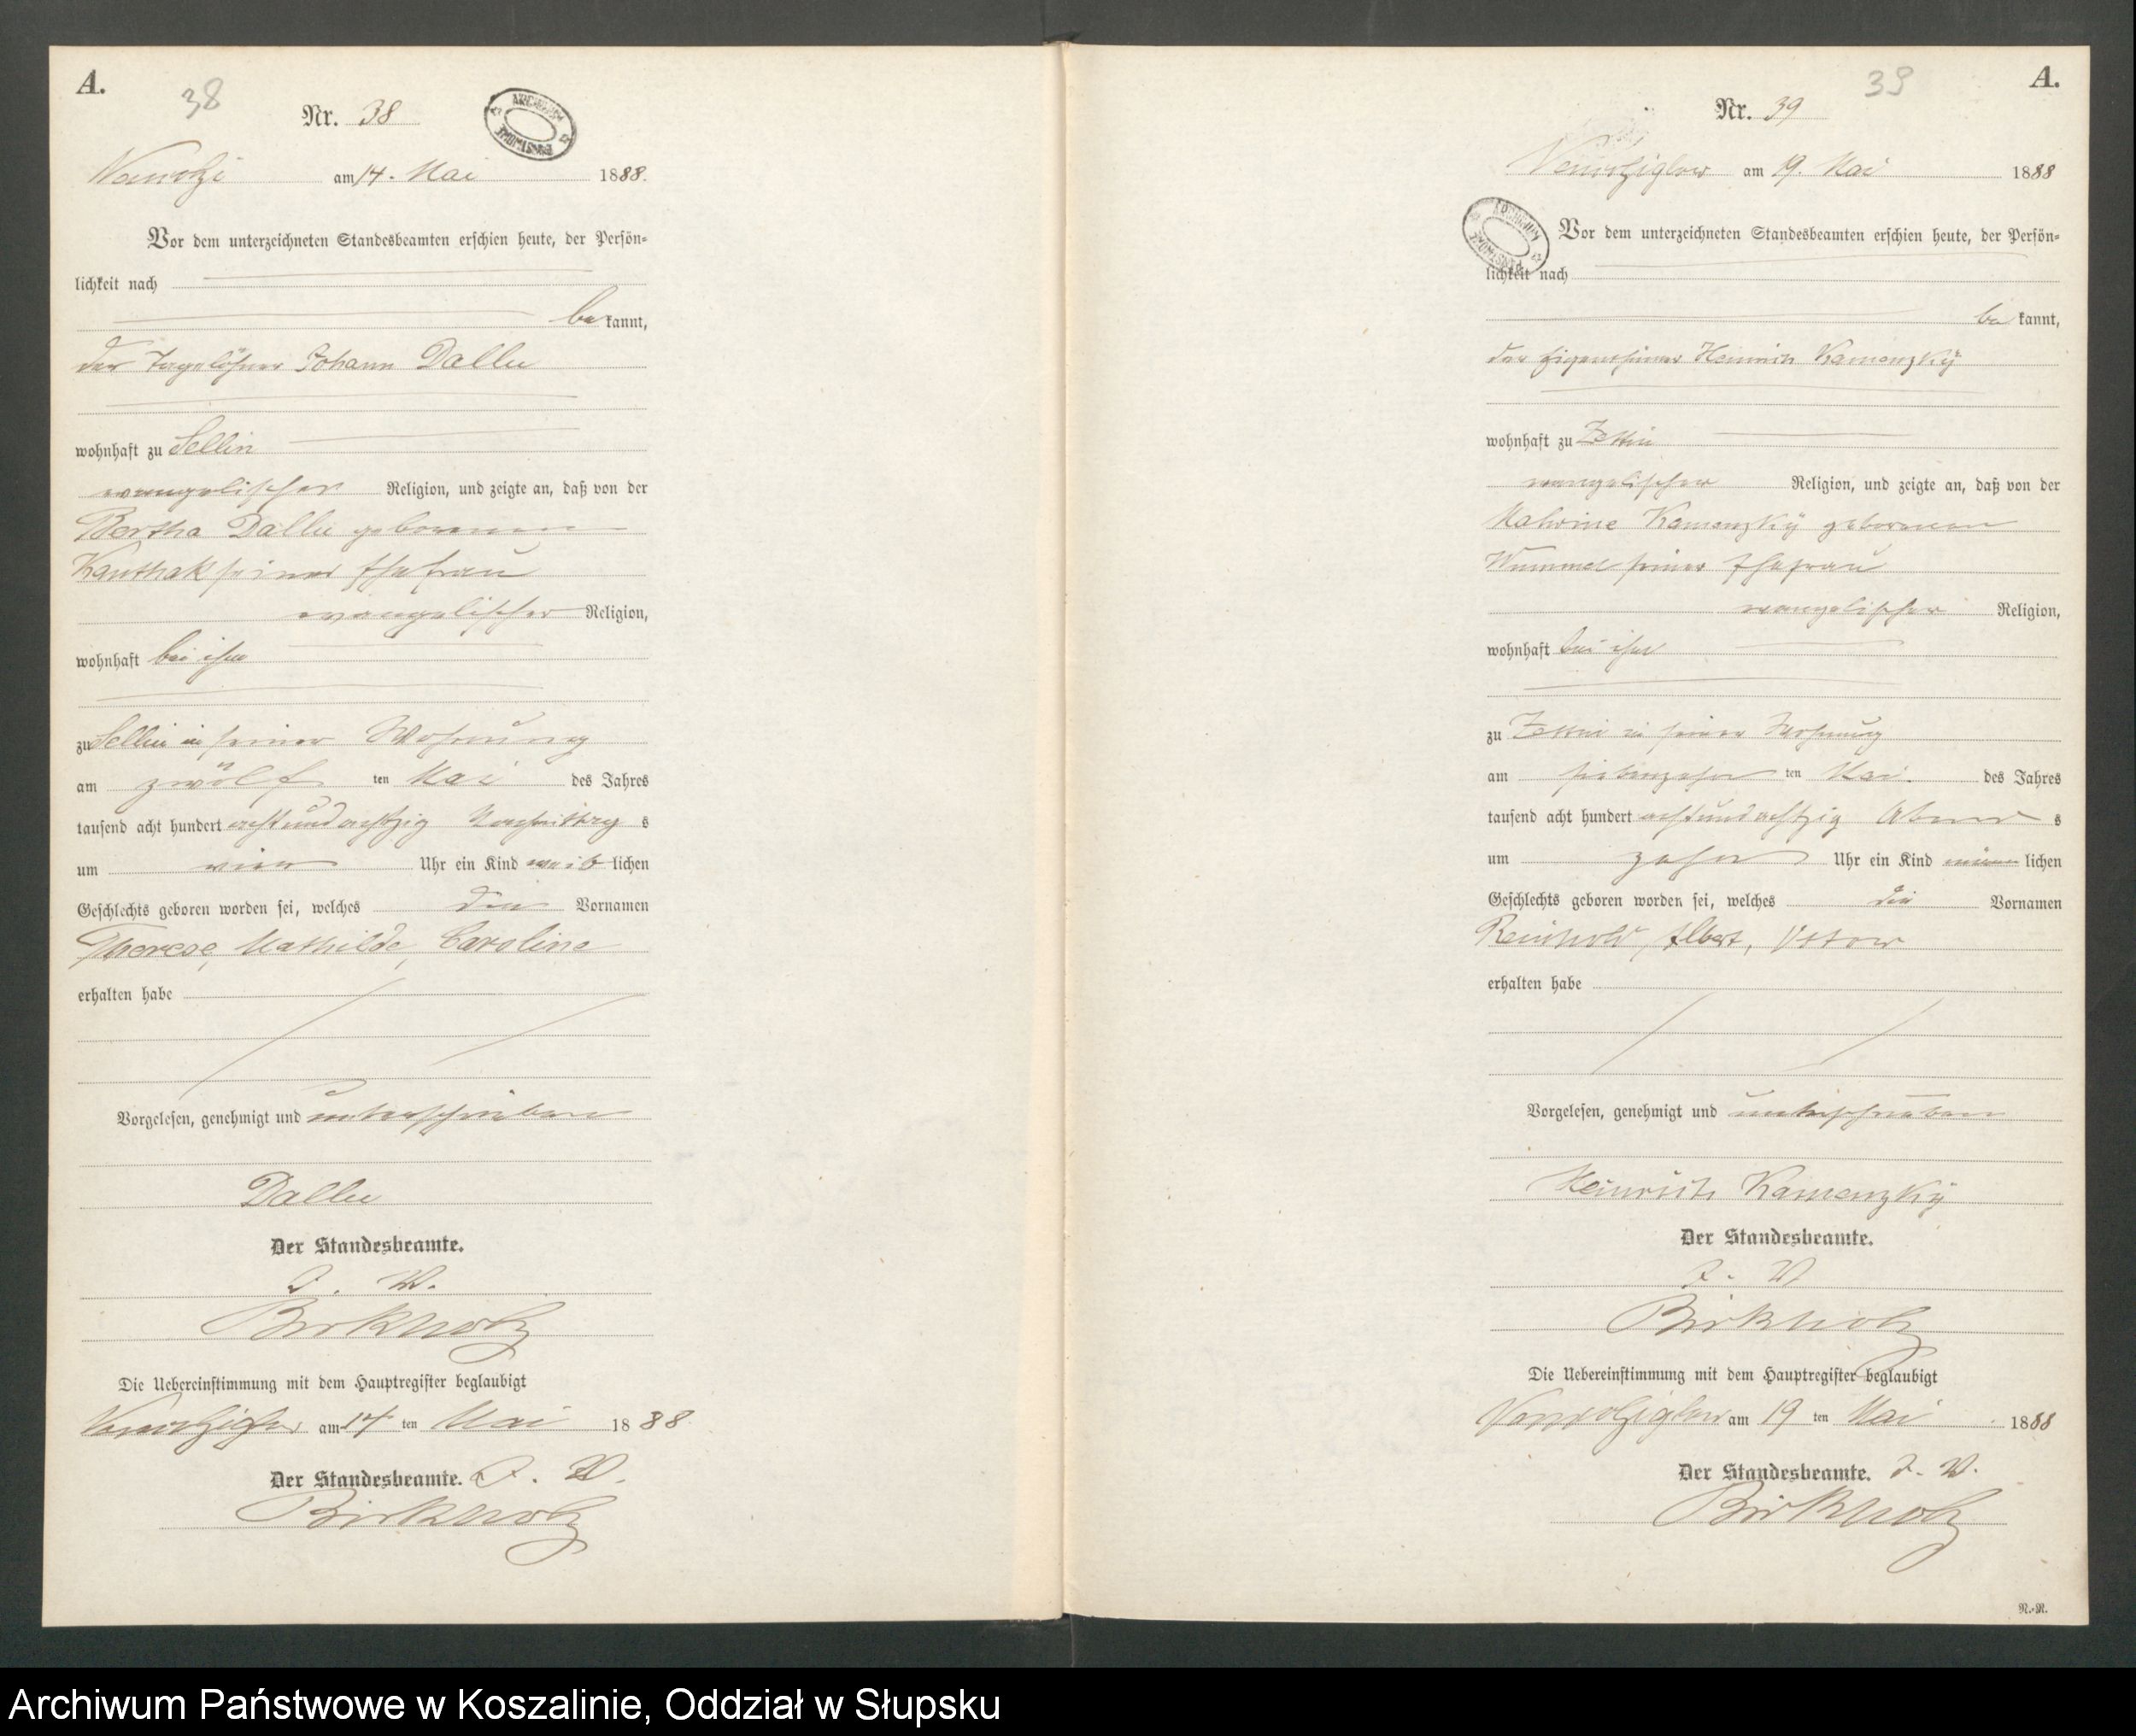 A.
38
Nr. 38
ARCHIWUM PAŃSTWOWE
am 14. Mai 1888.
Vor dem unterzeichneten Standesbeamten erschien heute, der Persön=
lichkeit nach
be kannt,
der Tagelöhner Johann Dallu
wohnhaft zu Sellin
evangelischer Religion, und zeigte an, daß von der
Bertha Dallu geborenen
Kanthak seiner Ehefrau
evangelischer Religion,
wohnhaft bei ihm
zu Sellin in seiner Wohnung
am zwölf ten Mai des Jahres
tausend acht hundert achtundachtzig Nachmittag s
um vier Uhr ein Kind weib lichen
Geschlechts geboren worden sei, welches die Vornamen
Therese, Mathilde, Caroline
erhalten habe
Vorgelesen, genehmigt und unterschrieben
Dallu
Der Standesbeamte.
J. V.
Birkholz
Die Uebereinstimmung mit dem Hauptregister beglaubigt
am 14 ten Mai 1888.
Der Standesbeamte. J. V.
Birkholz
39
A.
Nr. 39
am 19. Mai 1888
ARCHIWUM PAŃSTWOWE
Vor dem unterzeichneten Standesbeamten erschien heute, der Persön=
lichkeit nach
be kannt,
der Eigenthümer Heinrich Kamenzky
wohnhaft zu Zettin
evangelischer Religion, und zeigte an, daß von der
Kamenzky geborenen
seiner Ehefrau
evangelischer Religion,
wohnhaft bei ihm
zu Zettin in seiner Wohnung
am siebenzehn ten Mai. des Jahres
tausend acht hundert achtundachtzig Abend s
um zehn Uhr ein Kind männ lichen
Geschlechts geboren worden sei, welches die Vornamen
Reinhold, Albert,
erhalten habe
Vorgelesen, genehmigt und unterschrieben
Heinrich Kamenzky
Der Standesbeamte.
J. V.
Birkholz
Die Uebereinstimmung mit dem Hauptregister beglaubigt
am 19 ten Mai 1888
Der Standesbeamte. J. V.
Birkholz
N.-N.
Archiwum Państwowe w Koszalinie, Oddział w Słupsku